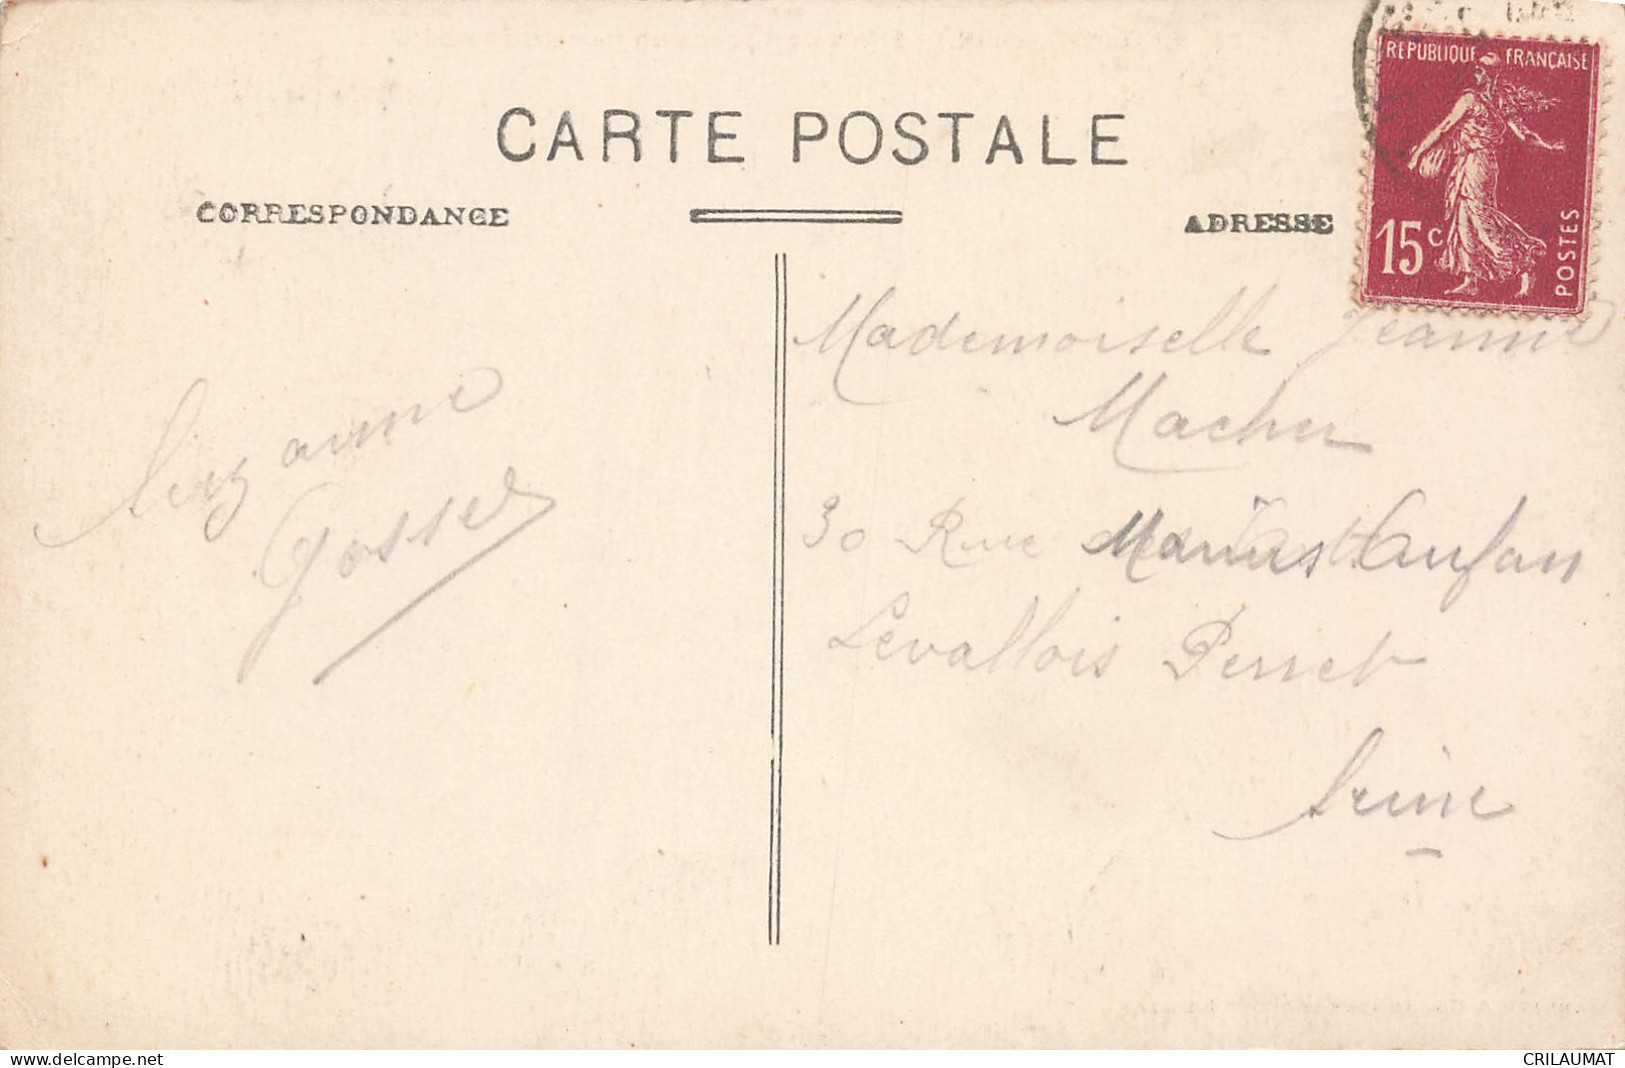 CARTE POSTALE
CORRESPONDANCE
ADRESSE
REPUBLIQUE FRANÇAISE
15 c
POSTES
Mademoiselle Jeanne
Macher
30 Rue Marius Aufan
Levallois Perret
Seine
Suzanne
Gosse
www.delcampe.net
CRILAUMAT